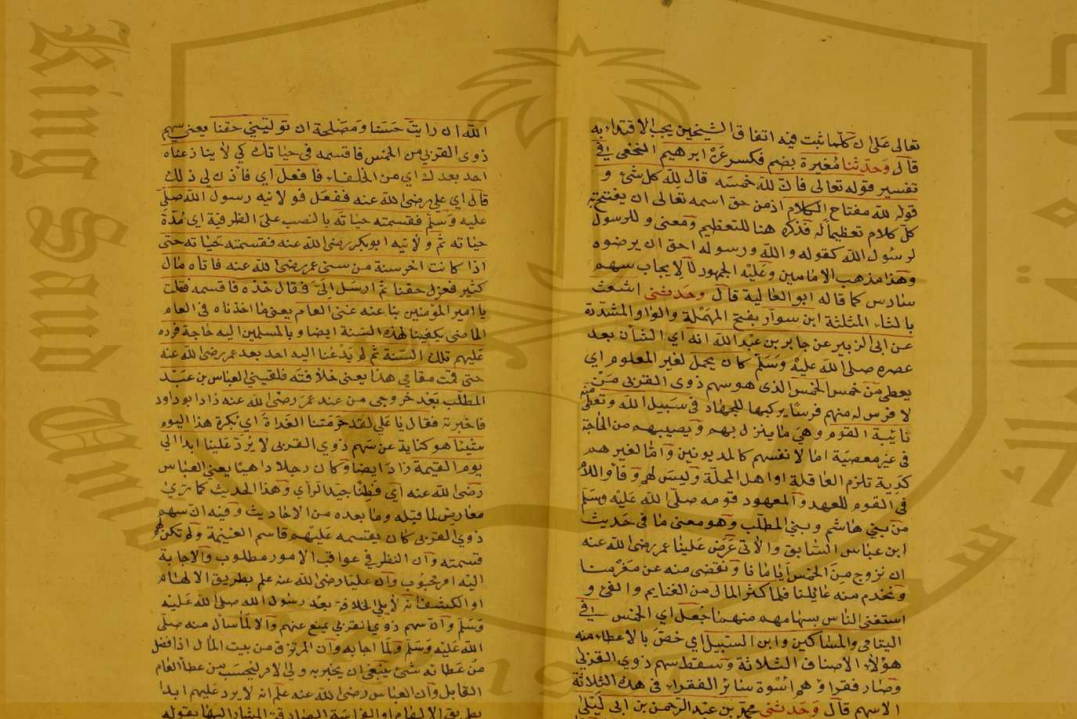 تعالى على ان كلما ثبت فيه اتفاق الشيخين يجب الاقتداء به
قال وحدثنا مغيرة بضم فكسر عن ابرهيم النخعي في
تفسير قوله تعالى فان لله خمسه قال لله كل شئ و
قوله لله مفتاح الكلام اذ من حق اسمه تعالى ان يفتتح به
كل كلام تعظيما له فذكره هنا للتعظيم ومعنى وللرسول
لرسول الله كقوله والله ورسوله احق ان يرضوه
وهذا مذهب الامامين وعليه الجمهور لا لايجاب سهم
سادس كما قاله ابو العالية قال وحدثنى اشعث
بالثاء المثلثة ابن سوار بفتح المهملة والواو المشددة
عن ابى الزبير عن جابر بن عبد الله انه اي الشان بعد
عصره صلى الله عليه وسلم كان يحمل لغير المعلوم اي
يعطى من خمس الخمس الذى هو سهم ذوي القربى من
لا فرس له منهم فرسا يركبها للجهاد في سبيل الله وتعطى منه
نائبة القوم وهى ما ينزل بهم ويصيبهم من الحاجة
في غير معصية اما لانفسهم كالمديونين واما لغيرهم
كدية تلزم العاقلة او اهل المحلة وليس لهم وفاء واللام
في القوم للعهد والمعهود قومه صلى الله عليه وسلم
من بني هاشم وبني المطلب وهو معنى ما في حديث
ابن عباس السابق والاتى عرض علينا عمر رضى الله عنه
ان نزوج من الخمس ايامانا ونقضى منه عن مغرمنا
ونخدم منه عائلنا فلما كثر المال من الغنايم والفئ و
استغنى الناس بسهامهم منهما جعل اي الخمس في
اليتامى والمساكين وابن السبيل اي خص بالاعطاء منه
هؤلاء الاصناف الثلاثة وسقط سهم ذوي القربى
وصار فقراؤهم اسوة سائر الفقراء في هذه الثلاثة
الاسهم قال وحدثنى محمد بن عبد الرحمن بن ابى ليلى
الله ان رايت حسنا ومصلحة ان توليني حقنا يعنى سهم
ذوى القربى من الخمس فاقسمه في حياتك كي لا ينازعناه
احد بعدك اي من الخلفاء فافعل اي فأذن لى ذلك
قال اي على رضى الله عنه ففعل فولانيه رسول الله صلى
عليه وسلم فقسمته حياته بالنصب على الظرفية اي مدة
حياته ثم ولانيه ابو بكر رضى الله عنه فقسمته حياته حتى
اذا كانت اخر سنة من سنى عمر رضى الله عنه فاتاه مال
كثير فعزل حقنا ثم ارسل الى فقال خذه فاقسمه فقلت
يا امير المؤمنين بنا عنه غنى العام يعنى ما اخذناه في العام
الماضى يكفينا لهذه السنة ايضا وبالمسلمين اليه حاجة فرده
عليهم تلك السنة ثم لم يدعنا اليه احد بعد عمر رضى الله عنه
حتى قمت مقامى هذا يعنى خلافته فلقينى العباس بن عبد
المطلب بعد خروجى من عند عمر رضى الله عنه زاد ابو داود
فاخبرته فقال يا على لقد حرمتنا الغداة اي بكرة هذا اليوم
شيئا هو كناية عن سهم ذوي القربى لا يرد علينا ابدا الى
يوم القيمة زاد ايضا وكان رجلا داهيا يعنى العباس
رضى الله عنه اي فطنا جيد الراي وهذا الحديث كما ترى
معارض لما قبله وما بعده من الاحاديث وفيه ان سهم
ذوي القربى كان يقسمه عليهم قاسم الغنيمة ولم تكن
قسمته وان النظر في عواقب الامور مطلوب والاجابة
اليه امر مرغوب وان علينا رضى الله عنه علم بطريق الالهام
او الكشف انه لا يلى الخلافة بعد رسول الله صلى الله عليه
وسلم وان سهم ذوي القربى يمنع عنهم والا لما سال منه صلى
الله عليه وسلم ولما اجابه وان المرتزق من بيت المال اذا فضل
من عطائه شئ ينبغى ان يخبر به ولى الامر ليحسب من عطاء العام
القابل وان العباس رضى الله عنه علم انه لا يرد عليهم ابدا
King Saud Univ